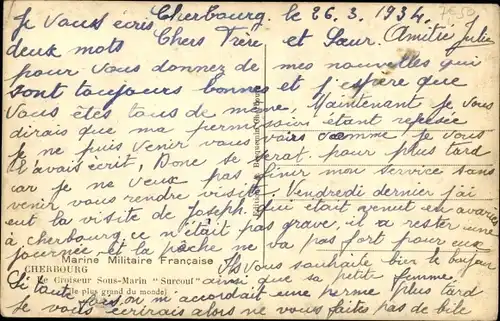 Je vous écris Cherbourg. le 26.3.1934.
deux mots Chers Frère et Sœur. Amitié Julie
pour vous donnez de mes nouvelles qui
sont toujours bonnes et j'espère que
vous êtes tous de même, Maintenant je vous
dirais que ma permission étant refusée
je ne puis venir vous voirs comme je vous
l'avais écrit, Donc se serat pour plus tard
car je ne veux pas finir mon service sans
venir vous rendre visite. Vendredi dernier j'ai
eut la visite de Joseph qui était venut en avaries
à cherbourg ce n'était pas grave, il a rester une
journée et la pêche ne va pas fort pour eux
Marine Militaire Française
Ils vous souhaite bien le bonjour
CHERBOURG
Le Croiseur Sous-Marin "Surcouf"
ainsi que sa petite femme
(le plus grand du monde)
Si toute fois, on m'accordait une perme plus tard
je vous écrirais alors ne vous faites pas de bile